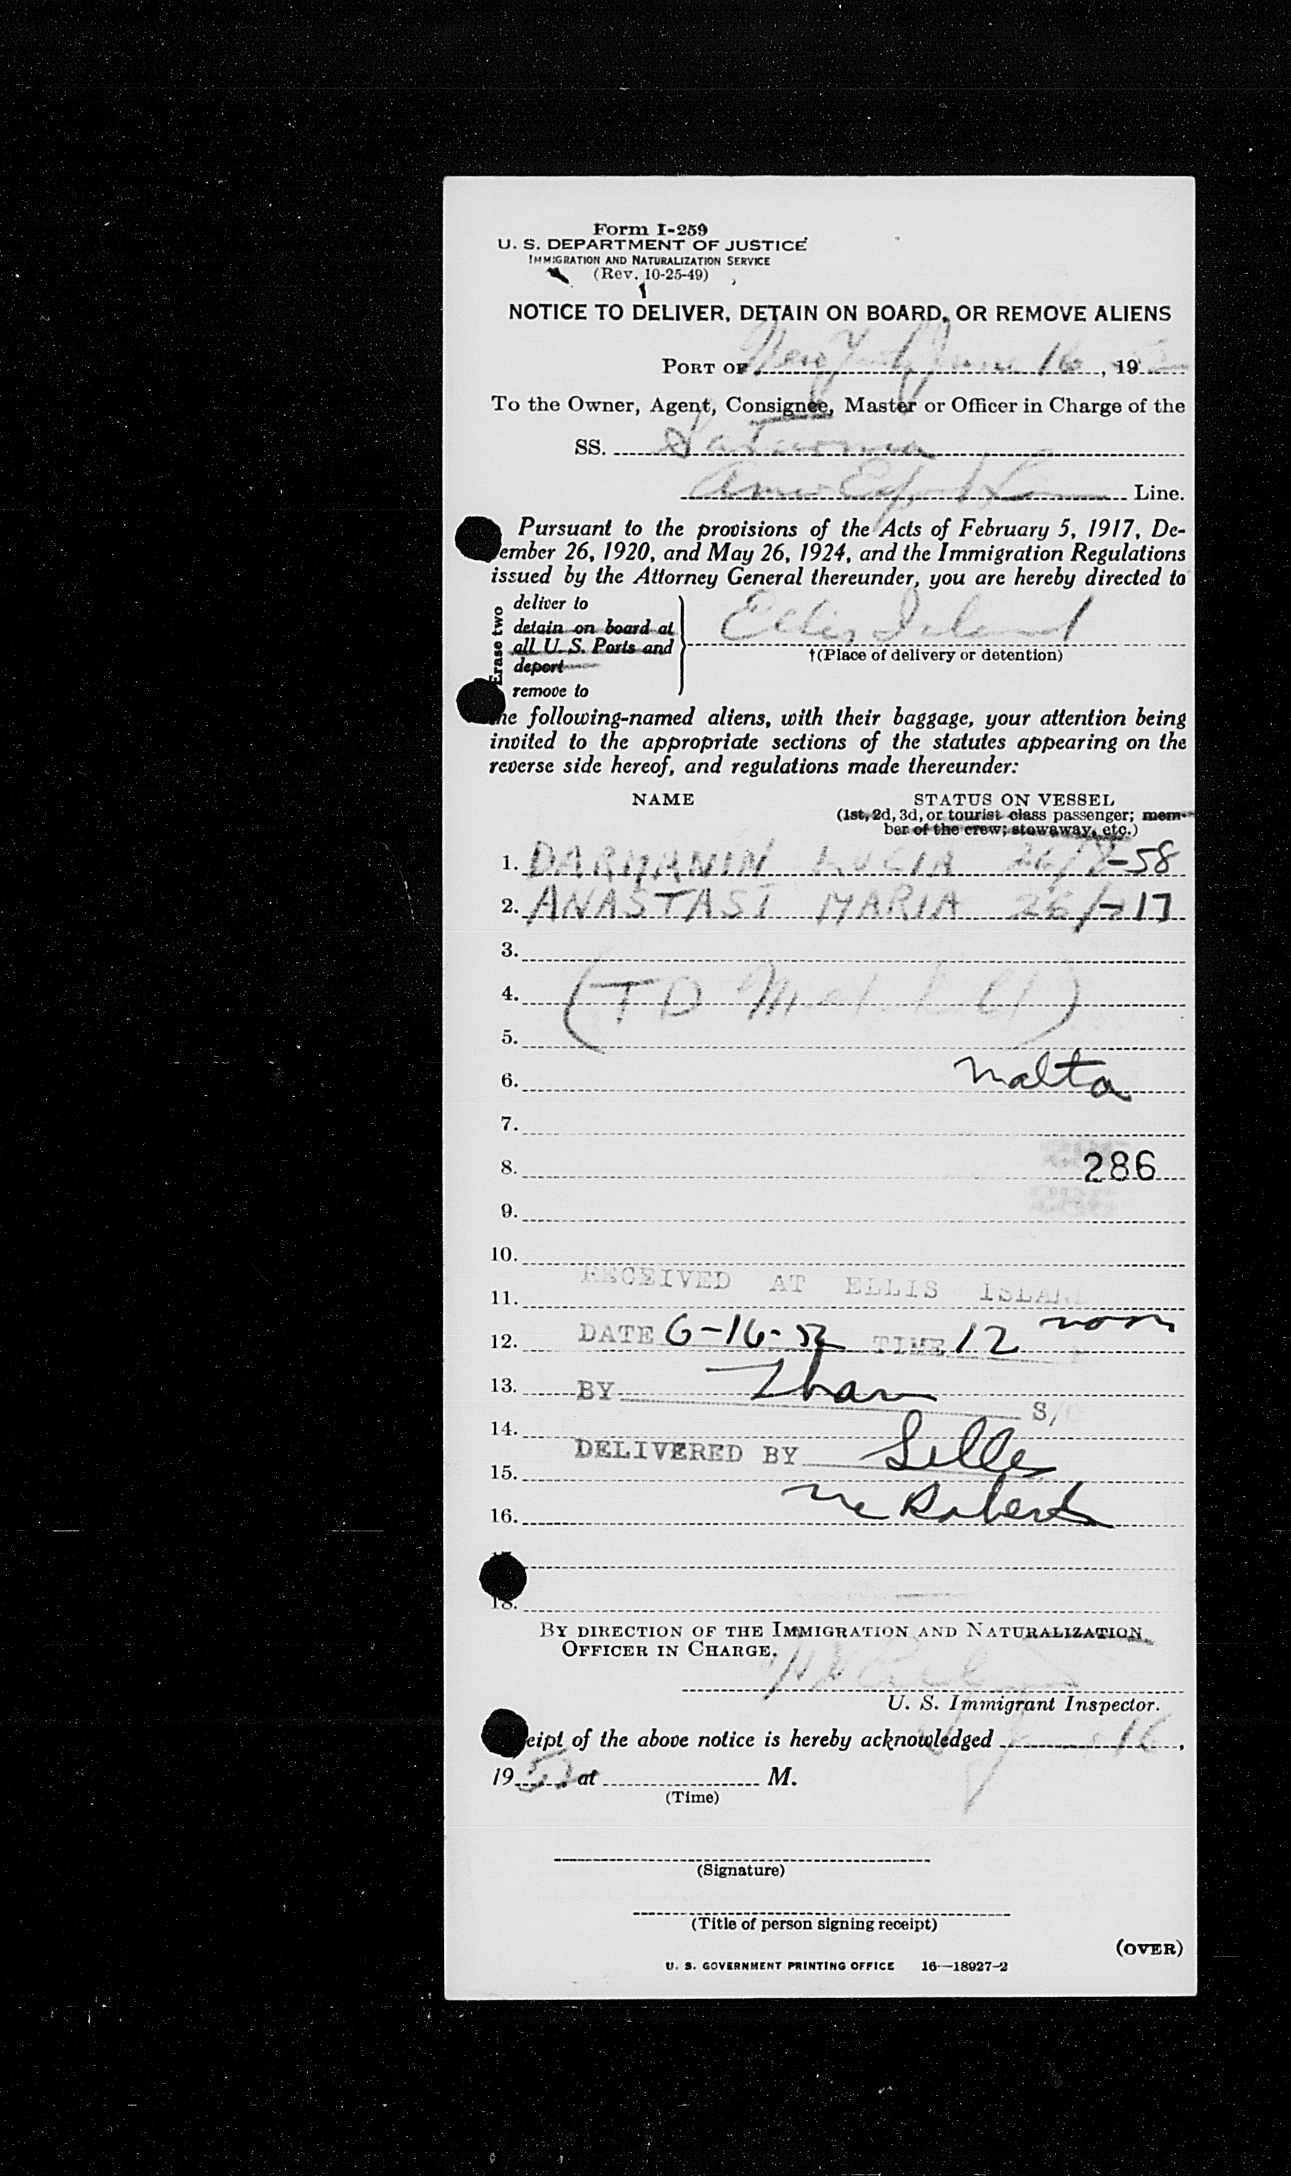 Form I-259
U. S. DEPARTMENT OF JUSTICE
IMMIGRATION AND NATURALIZATION SERVICE
(Rev. 10-25-49)
NOTICE TO DELIVER, DETAIN ON BOARD, OR REMOVE ALIENS
PORT OF New York June 16, 1952
To the Owner, Agent, Consignee, Master or Officer in Charge of the
SS. Saturnia
Line.
Pursuant to the provisions of the Acts of February 5, 1917, De-
ember 26, 1920, and May 26, 1924, and the Immigration Regulations
issued by the Attorney General thereunder, you are hereby directed to
Erase two
deliver to
detain on board at
all U. S. Ports and
deport
remove to
Ellis Island
†(Place of delivery or detention)
the following-named aliens, with their baggage, your attention being
invited to the appropriate sections of the statutes appearing on the
reverse side hereof, and regulations made thereunder:
NAME STATUS ON VESSEL
(1st, 2d, 3d, or tourist class passenger; mem-
ber of the crew; stowaway, etc.)
1. DARMANIN LUCIA 26/-58
2. ANASTASI MARIA 26/-17
3.
4. (TD
5.
6. Malta
7.
8. 286
9.
10.
RECEIVED AT ELLIS ISLAND
11.
12. DATE 6-16-52 TIME 12 noon
13. BY
S/
14.
DELIVERED BY
15.
16. McRoberts
18.
BY DIRECTION OF THE IMMIGRATION AND NATURALIZATION
OFFICER IN CHARGE.
U. S. Immigrant Inspector.
eipt of the above notice is hereby acknowledged 16,
1952 at M.
(Time)
(Signature)
(Title of person signing receipt)
(OVER)
U. S. GOVERNMENT PRINTING OFFICE 16—18927-2